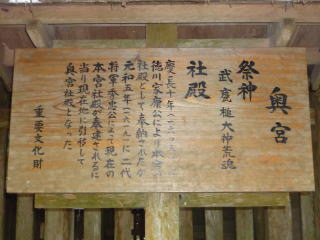 奥宮
祭神
武甕槌大神荒魂
社殿
慶長十年(一六〇五)
徳川家康公により本宮の
社殿として奉納されたが
元和五年(一六一九)に二代
将軍秀忠公により現在の
本宮社殿が奉建されるに
当り現在地に引移して
奥宮社殿となった
重要文化財